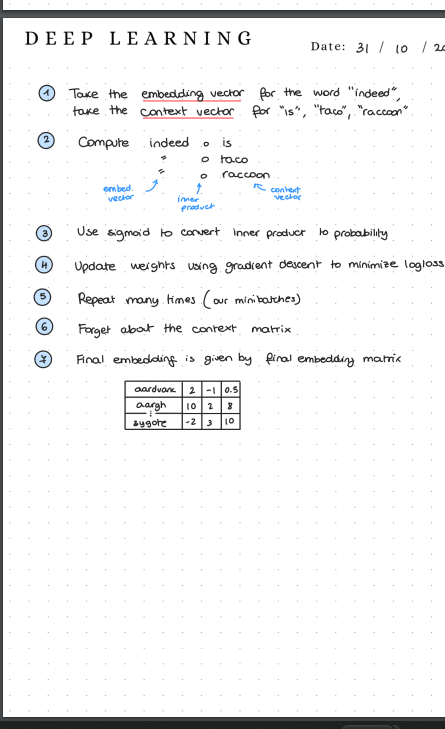 DEEP LEARNING
Date: 31 / 10 / 20
1 Take the embedding vector for the word "indeed",
take the context vector for "is", "taco", "raccoon"
2 Compute indeed o is
" o taco
" o raccoon
embed. vector
inner product
context vector
3 Use sigmoid to convert inner product to probability
4 Update weights using gradient descent to minimize logloss
5 Repeat many times (our minibatches)
6 Forget about the context matrix
7 Final embedding is given by final embedding matrix
aardvark 2 -1 0.5
aargh 10 2 8
⋮
zygote -2 3 10